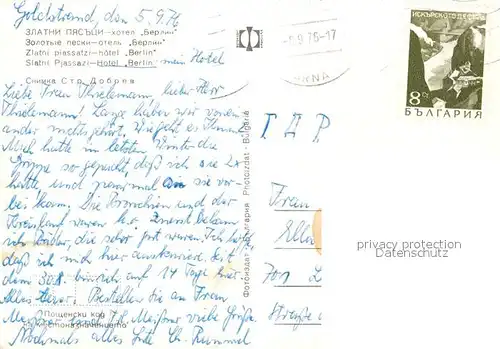 Goldstrand, den 5.9.76
ЗЛАТНИ ПЯСЪЦИ – хотел „Берлин"
Золотые пески – отель „Берлин"
Zlatni piassatzi – hôtel „Berlin"
Slatni Pjassazi – Hotel „Berlin" mein Hotel
Снимка Стр. Добрев
Liebe Frau Thielemann, lieber Herr
Thielemann! Lange haben wir vonein-
ander nichts gehört. Wie geht es Ihnen?
Mich hatte im letzten Winter die
Grippe so gepackt, daß ich sie 2x
hatte, und zwar mal an sie vor-
bei kam. Die Bronchien und der
Kreislauf waren Zuerst bekam
ich Bäder, die sehr gut waren. Ich hoffe,
daß ich mich hier auskuriere. Seit
dem 30.8. bin ich auf 14 Tage hier
Alles Bestellen Sie an Frau
Meißner viele Grüße.
Nochmals alles Gute Ch. Rummel
Пощенски код
на местоназначението
Фотоиздат - България Photoizdat - Bulgarie
-9.76-11
ИСКЪРСКОТО ДЕФИЛЕ
8 ст
БЪЛГАРИЯ
ГДР
Frau
Ella
701 L
Straße
privacy protection
Datenschutz